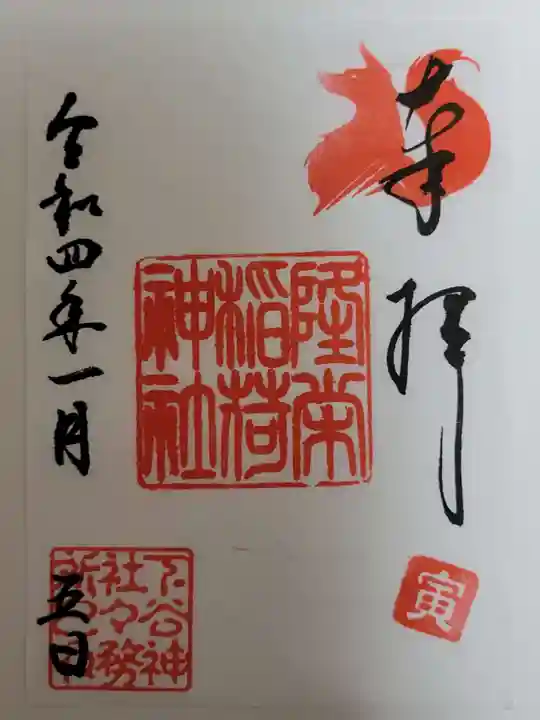 奉拝
隆栄
稲荷
神社
寅
令和四年一月
五日
下谷神
社々務
所